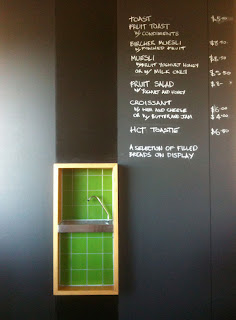 TOAST
FRUIT TOAST
w/ CONDIMENTS
BIRCHER MUESLI
w/ POACHED FRUIT
MUESLI
w/ FRUIT YOGHURT HONEY
OR w/ MILK ONLY
FRUIT SALAD
w/ YOGHURT AND HONEY
CROISSANT
w/ HAM AND CHEESE
OR w/ BUTTER AND JAM
HOT TOASTIE
A SELECTION OF FILLED
BREADS ON DISPLAY